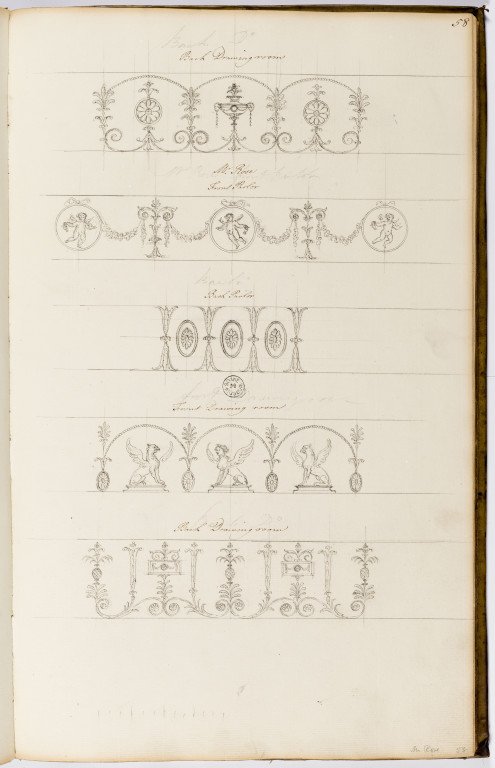 58
Back Drawing room
Mr. Rose
Front Parlor
Back Parlor
Front Drawing room
Back Drawing room
Mr Rose 58